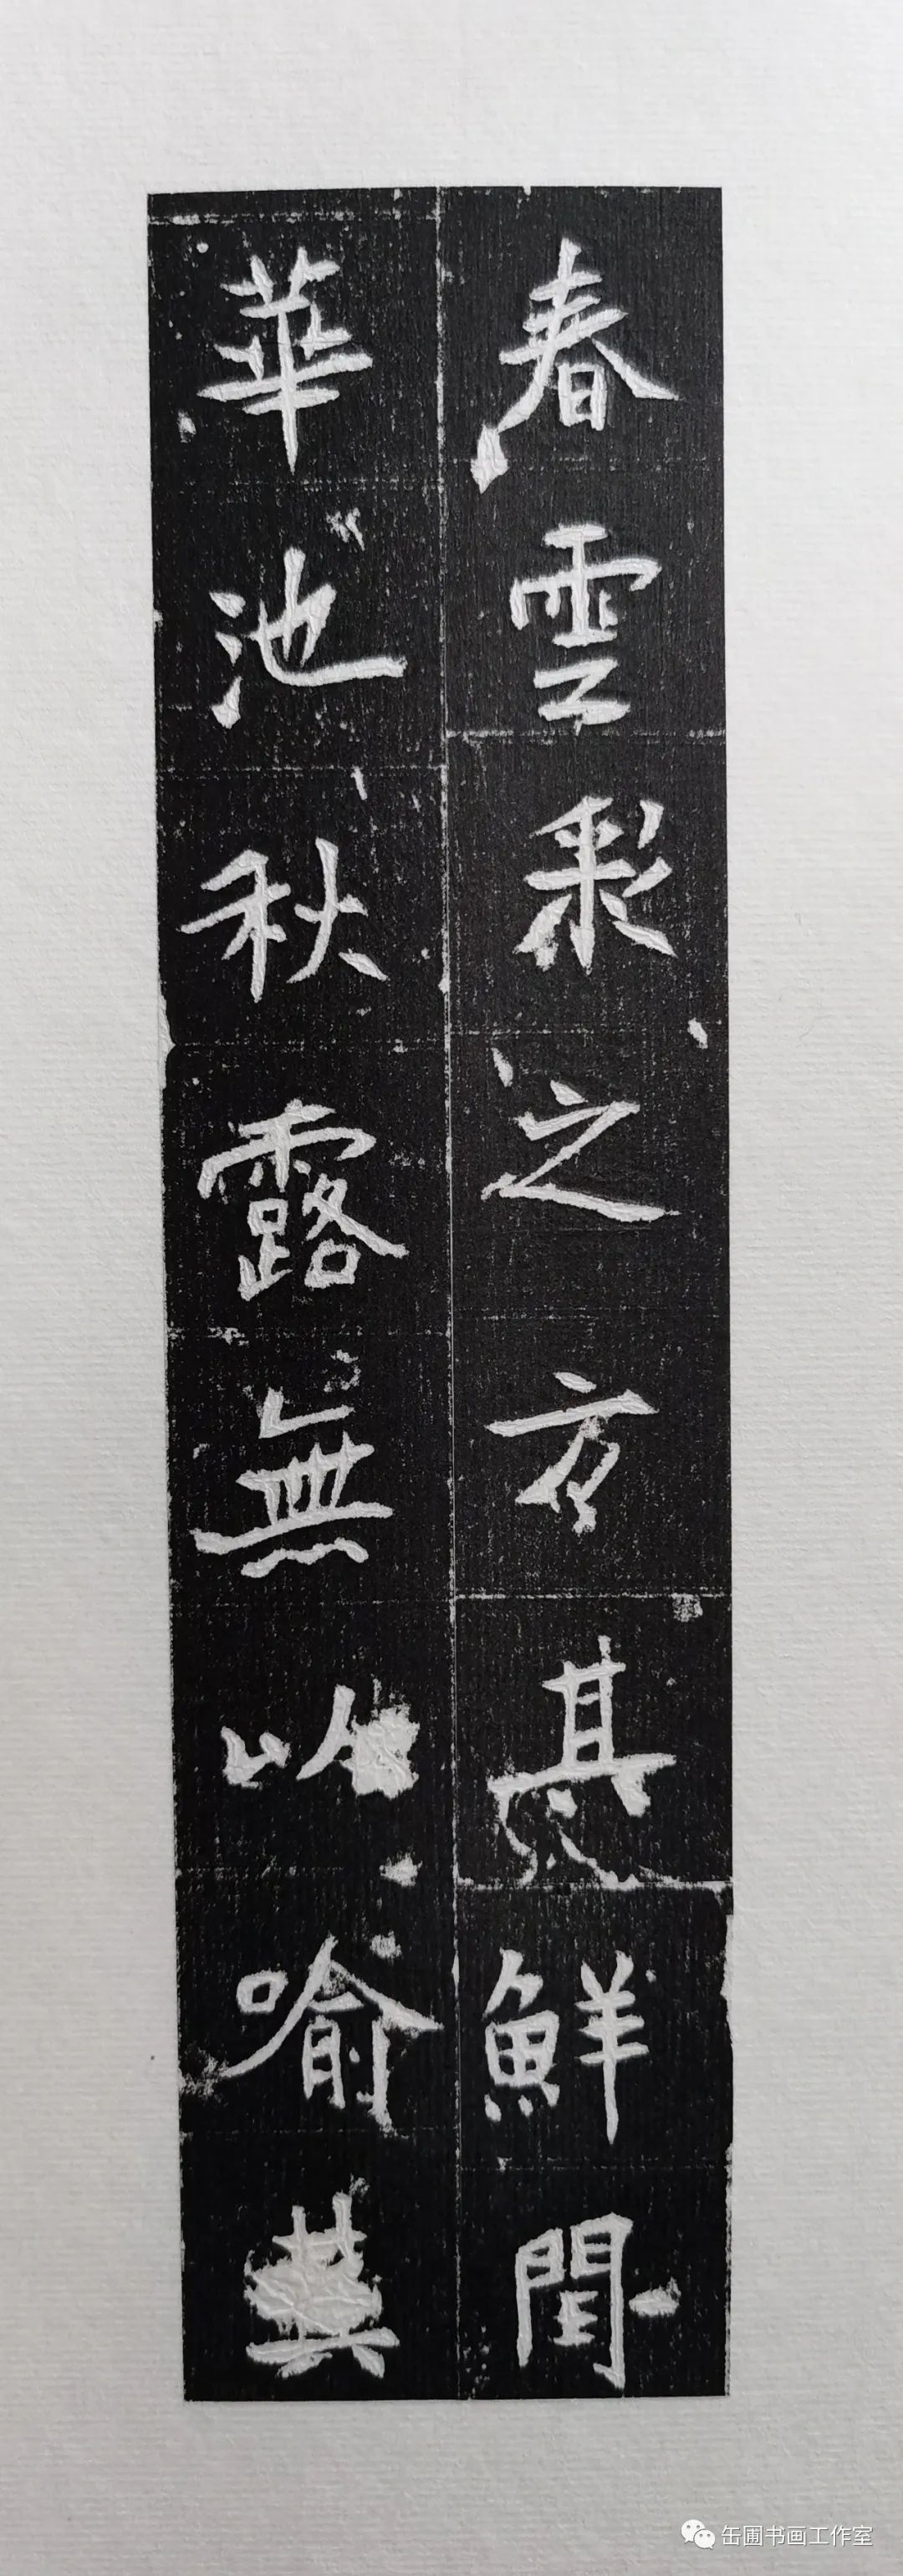 春雲彩之方其鮮閏
華池秋露無以喻其
缶圃书画工作室